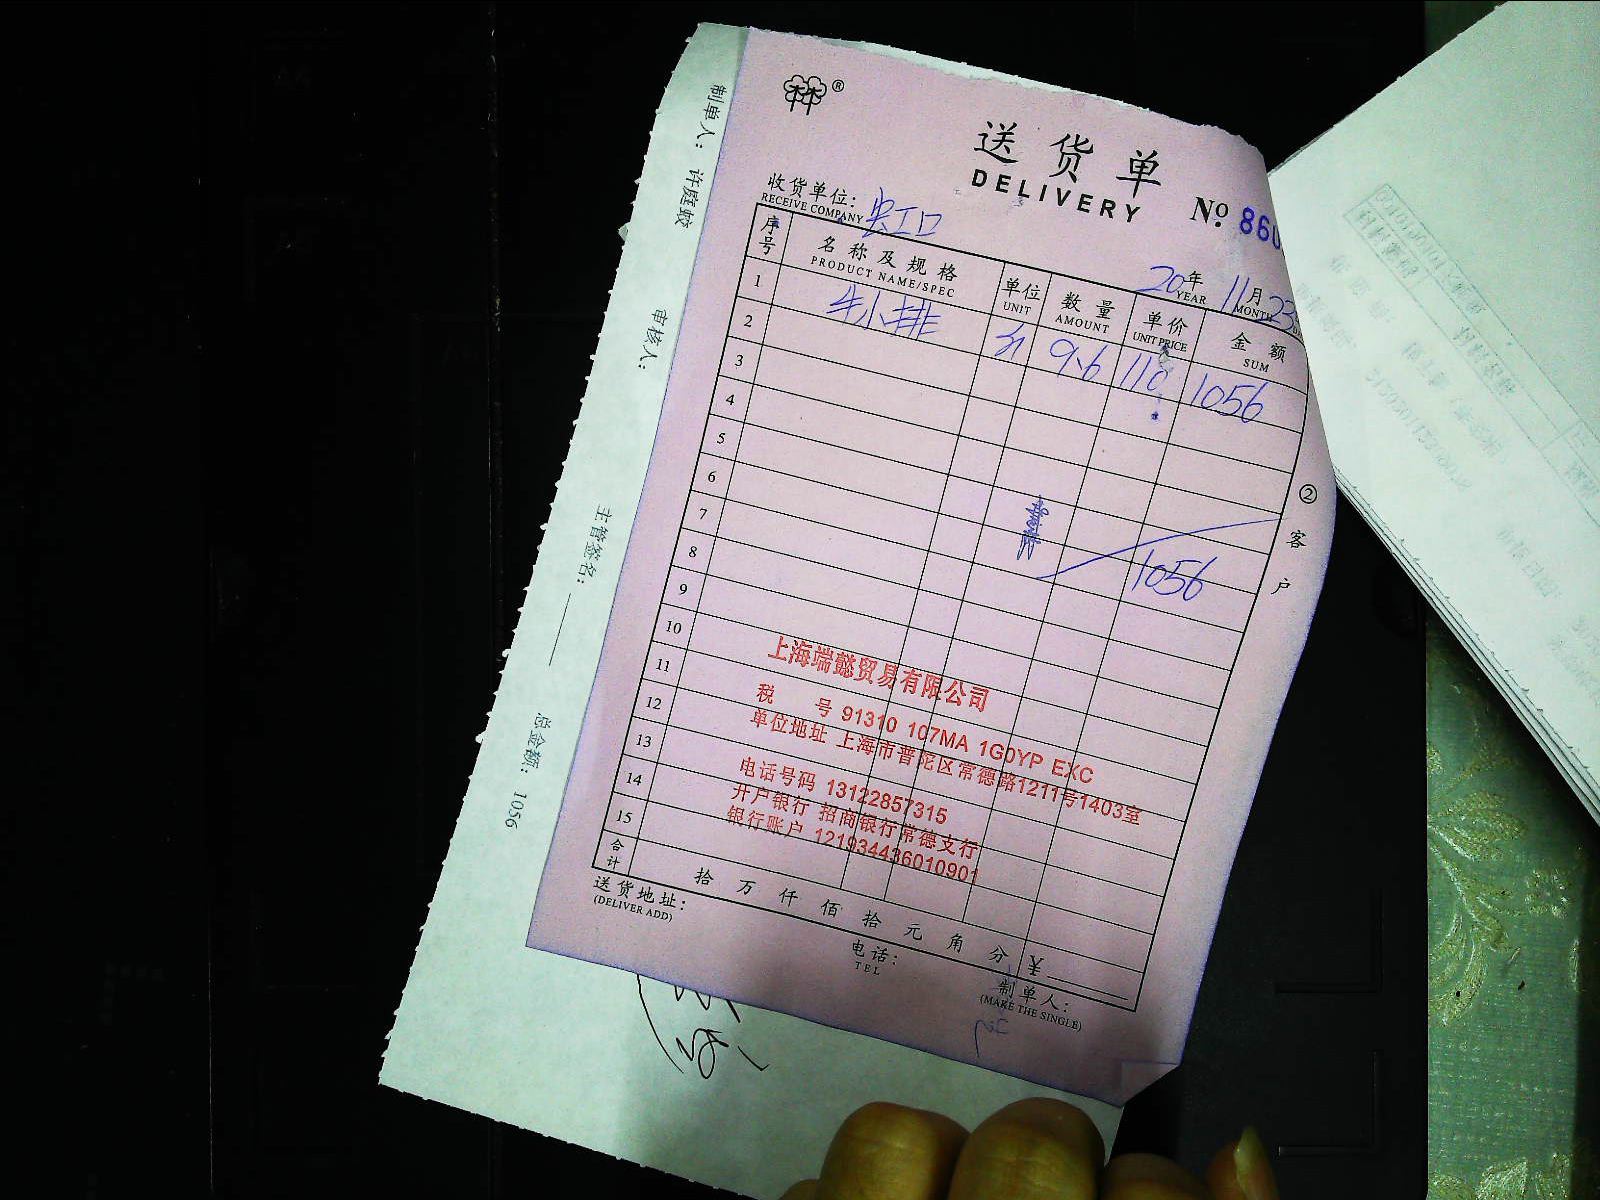 送货单
DELIVERY
№ 860
收货单位: 虹口
RECEIVE COMPANY
20年 11月 23
YEAR MONTH
序号 名称及规格 单位 数量 单价 金额
PRODUCT NAME/SPEC UNIT AMOUNT UNIT PRICE SUM
1 牛小排 斤 9.6 110 1056
2
3
4
5
6
7
8 1056
9
10
11
12
13
14
15
上海端懿贸易有限公司
税 号 91310 107MA 1G0YP EXC
单位地址 上海市普陀区常德路1211号1403室
电话号码 13122857315
开户银行 招商银行常德支行
银行账户 121934436010901
合计 拾 万 仟 佰 拾 元 角 分 ¥
送货地址:
(DELIVER ADD)
电话:
TEL
制单人:
(MAKE THE SINGLE)
② 客户
制单人: 许庭蛟
审核人:
主管签名:
总金额: 1056